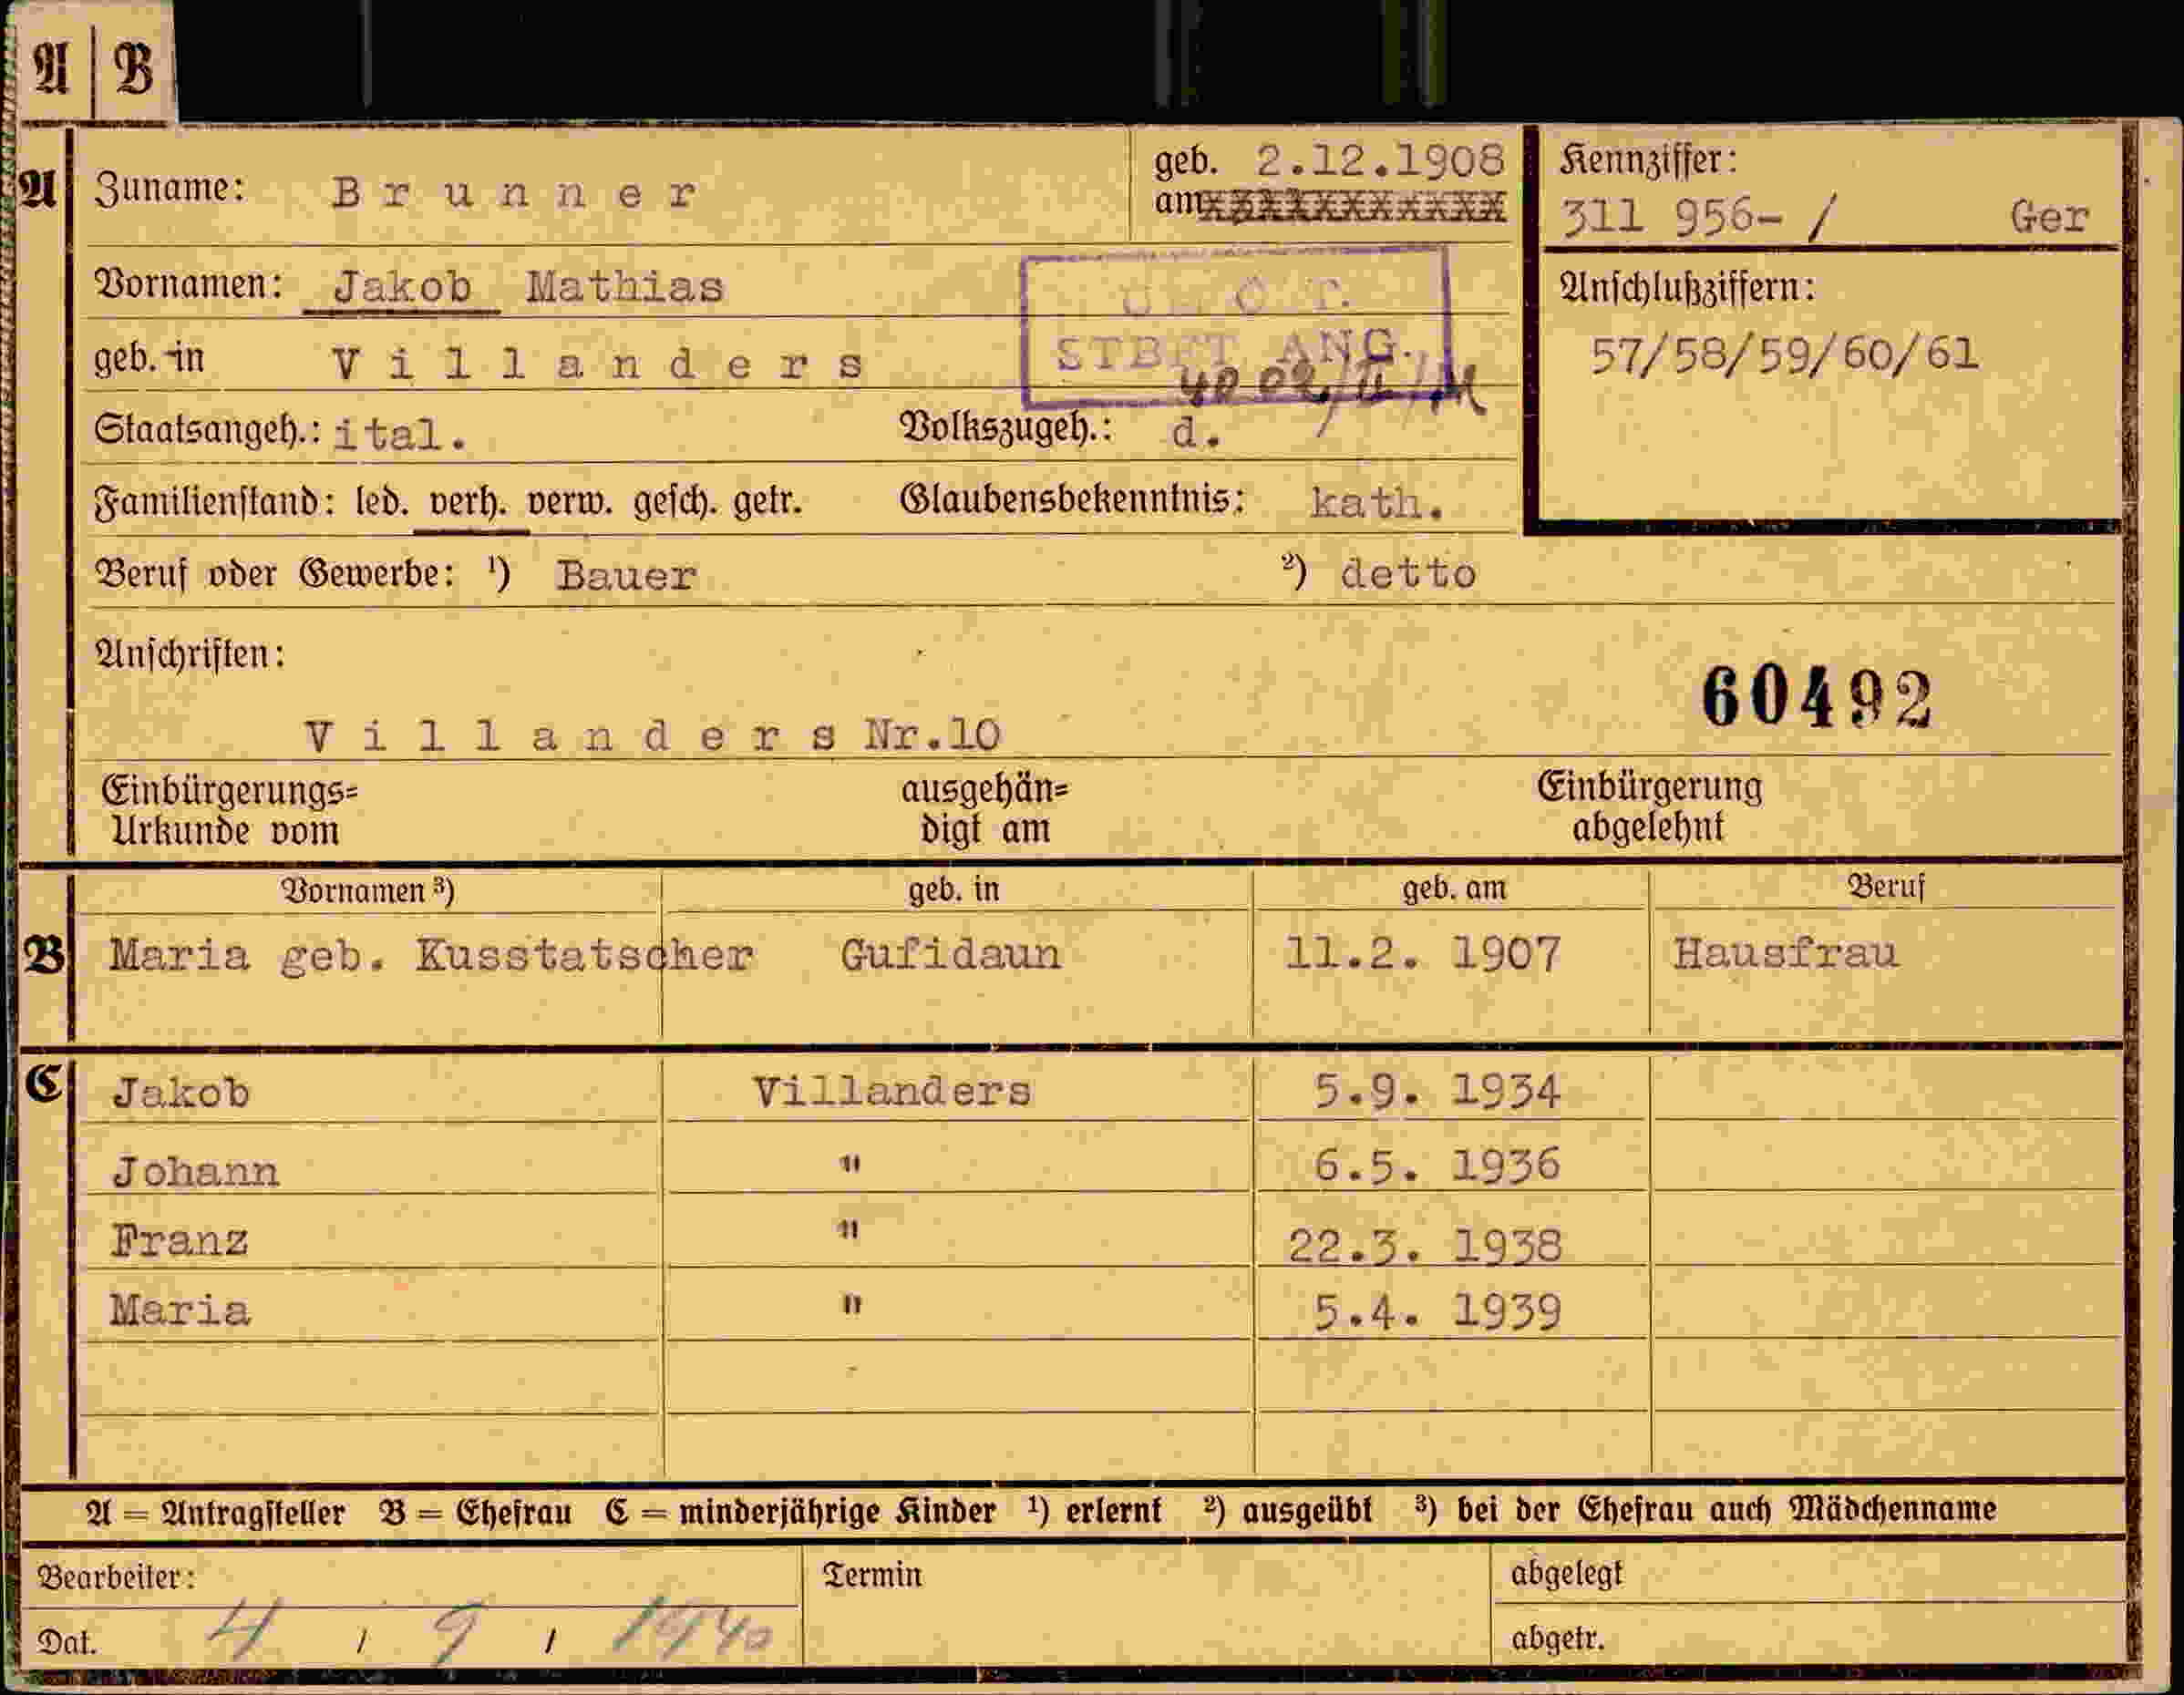 A | B
A Zuname: Brunner geb. am 2.12.1908
Kennziffer:
311 956- / Ger
Vornamen: Jakob Mathias
Anschlußziffern:
57/58/59/60/61
geb. in Villanders
STBET ANG.
Staatsangeh.: ital. Volkszugeh.: d.
Familienstand: led. verh. verw. gesch. getr. Glaubensbekenntnis: kath.
Beruf oder Gewerbe: ¹) Bauer ²) detto
Anschriften:
60492
Villanders Nr.10
Einbürgerungs= ausgehän= Einbürgerung
Urkunde vom digt am abgelehnt
Vornamen ³) geb. in geb. am Beruf
B Maria geb. Kusstatscher Gufidaun 11.2. 1907 Hausfrau
C Jakob Villanders 5.9. 1934
Johann " 6.5. 1936
Franz " 22.3. 1938
Maria " 5.4. 1939
A = Antragsteller B = Ehefrau C = minderjährige Kinder ¹) erlernt ²) ausgeübt ³) bei der Ehefrau auch Mädchenname
Bearbeiter: Termin abgelegt
Dat. 4 / 9 / 1940 abgetr.